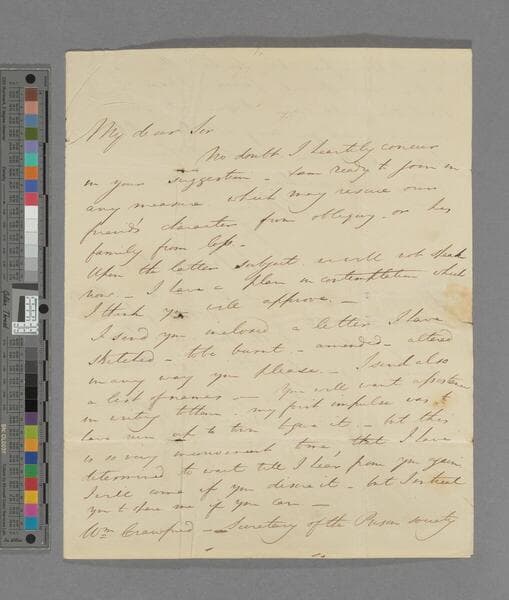 My dear Sir
No doubt I heartily concur
in your suggestion - I am ready to join in
any measure which may rescue our
friend's character from obloquy - or his
family from loss -
Upon the latter subject I will not speak
now - I have a plan in contemplation which
I think you will approve. -
I send you inclosed a letter I have
sketched - to be burnt - amended - altered
in any way you please. - I send also
a list of names - You will want assistance
in writing to them - my first impulse was to
have run up to town upon it - but this
is so very inconvenient time, that I have
determined to wait till I hear from you again
I will come if you desire it - but I entreat
you to spare me if you can -
Wm Crawford - Secretary of the Prison Society